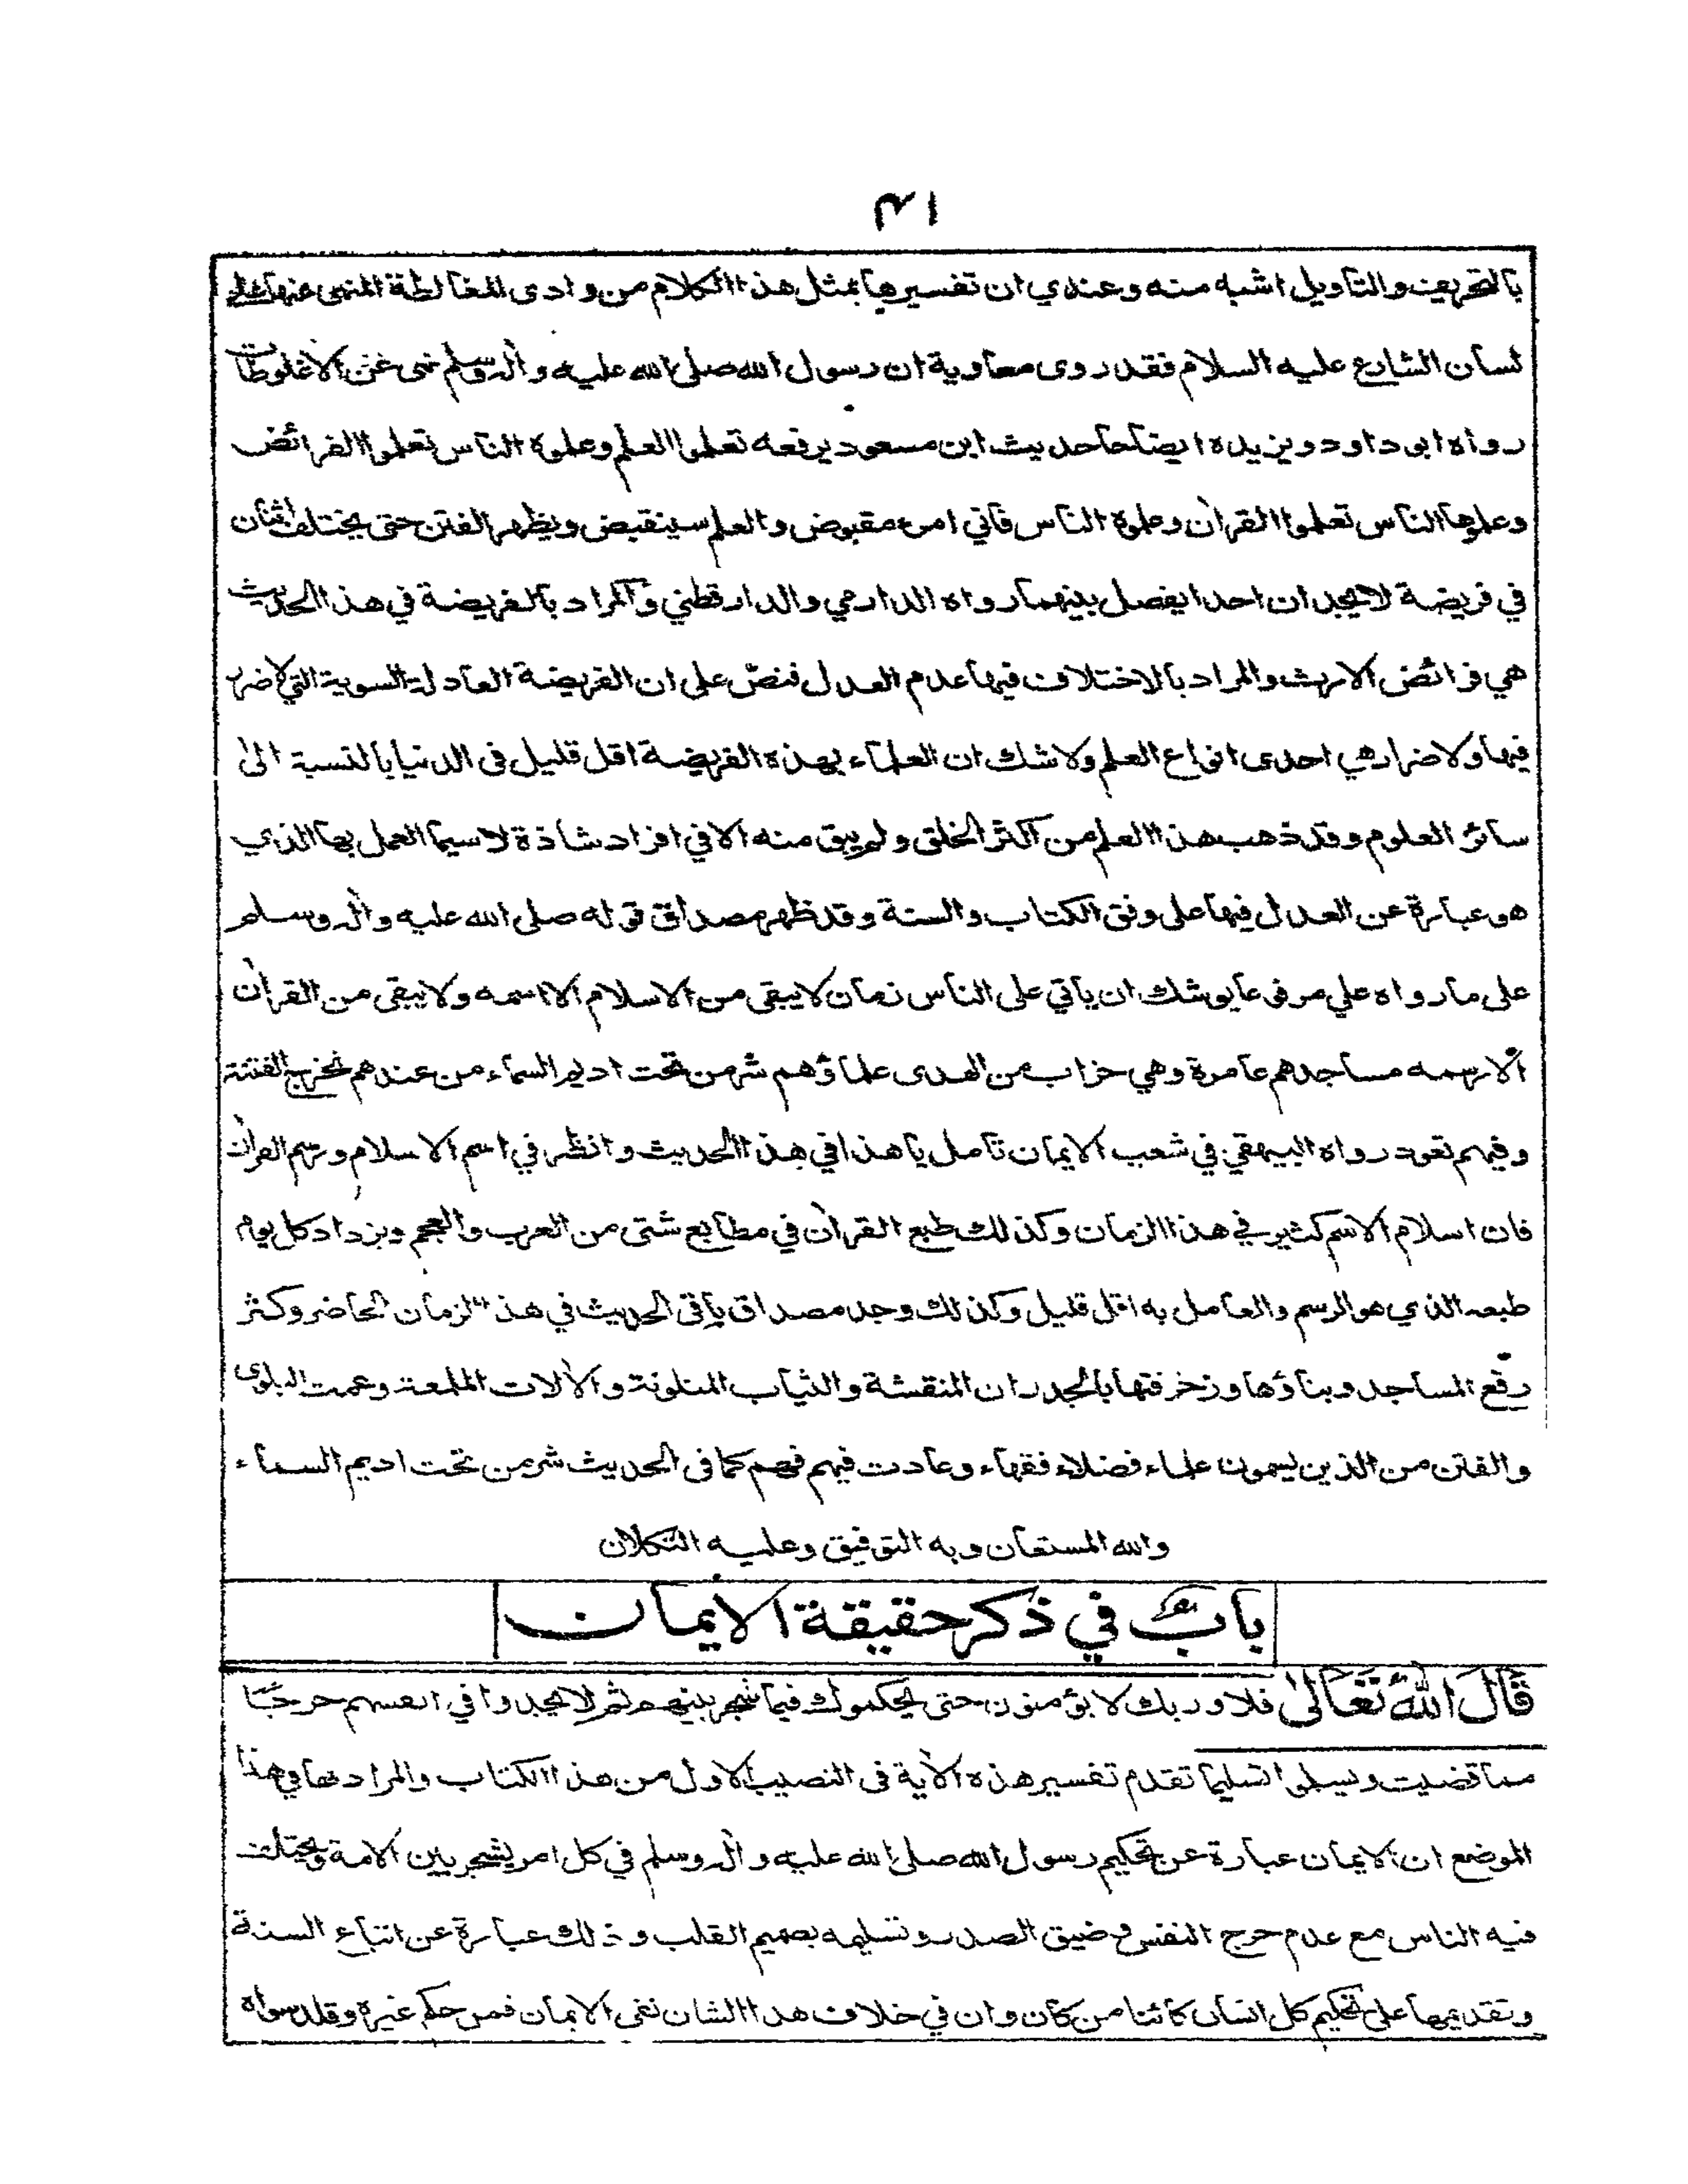 ١٣
بالتحريف والتاويل اشبه منه وعندي ان تفسيرها بمثل هذا الكلام من وادى المغالطة المنهى عنها على
لسان الشارع عليه السلام فقد روى معاوية ان رسول الله صلى الله عليه وآله وسلم نهى عن الاغلوطات
رواه ابو داود ويزيده ايضاحا حديث ابن مسعود يرفعه تعلموا العلم وعلموه الناس تعلموا الفرائض
وعلموها الناس تعلموا القرآن وعلموه الناس فاني امرء مقبوض والعلم سينقبض ويظهر الفتن حتى يختلف اثنان
في فريضة لا يجدان احدا يفصل بينهما رواه الدارمي والدارقطني والمراد بالفريضة في هذا الحديث
هي فرائض الارث والمراد بالاختلاف فيها عدم العدل فنص على ان الفريضة العادلة السوية التي لا ضرر
فيها ولا ضرار هي احدى انواع العلم ولا شك ان العلماء بهذه الفريضة اقل قليل فى الدنيا بالنسبة الى
سائر العلوم وقد ذهب هذا العلم من اكثر الخلق ولم يبق منه الا في افراد شاذة لا سيما العمل بها الذي
هو عبارة عن العدل فيها على وفق الكتاب والسنة وقد ظهر مصداق قوله صلى الله عليه وآله وسلم
على ما رواه علي مرفوعا يوشك ان ياتي على الناس زمان لا يبقى من الاسلام الا اسمه ولا يبقى من القرآن
الا رسمه مساجدهم عامرة وهي خراب من الهدى علماؤهم شر من تحت اديم السماء من عندهم تخرج الفتنة
وفيهم تعود رواه البيهقي في شعب الايمان تامل يا هذا في هذا الحديث وانظر في اسم الاسلام ورسم القرآن
فان اسلام الاسم كثير في هذا الزمان وكذلك طبع القرآن في مطابع شتى من العرب والعجم ويزداد كل يوم
طبعه الذي هو الرسم والعامل به اقل قليل وكذلك وجد مصداق باقي الحديث في هذا الزمان الحاضر وكثر
رفع المساجد وبناؤها وزخرفتها بالجدران المنقشة والثياب المتلونة والآلات الملمعة وعمت البلوى
والفتن من الذين يسمون علماء فضلاء فقهاء وعادت فيهم فهم كما فى الحديث شر من تحت اديم السماء
والله المستعان وبه التوفيق وعليه التكلان
باب في ذكر حقيقة الايمان
قال الله تعالى فلا وربك لا يؤمنون حتى يحكموك فيما شجر بينهم ثم لا يجدوا في انفسهم حرجا
مما قضيت ويسلموا تسليما تقدم تفسير هذه الآية فى النصيب الاول من هذا الكتاب والمراد بها في هذا
الموضع ان الايمان عبارة عن تحكيم رسول الله صلى الله عليه وآله وسلم في كل امر يشجر بين الامة ويختلف
فيه الناس مع عدم حرج النفس وضيق الصدر وتسليمه بصميم القلب وذلك عبارة عن اتباع السنة
وتقديمها على تحكيم كل انسان كائنا من كان وان في خلاف هذا الشان نفى الايمان فمن حكم غيره وقلد سواه